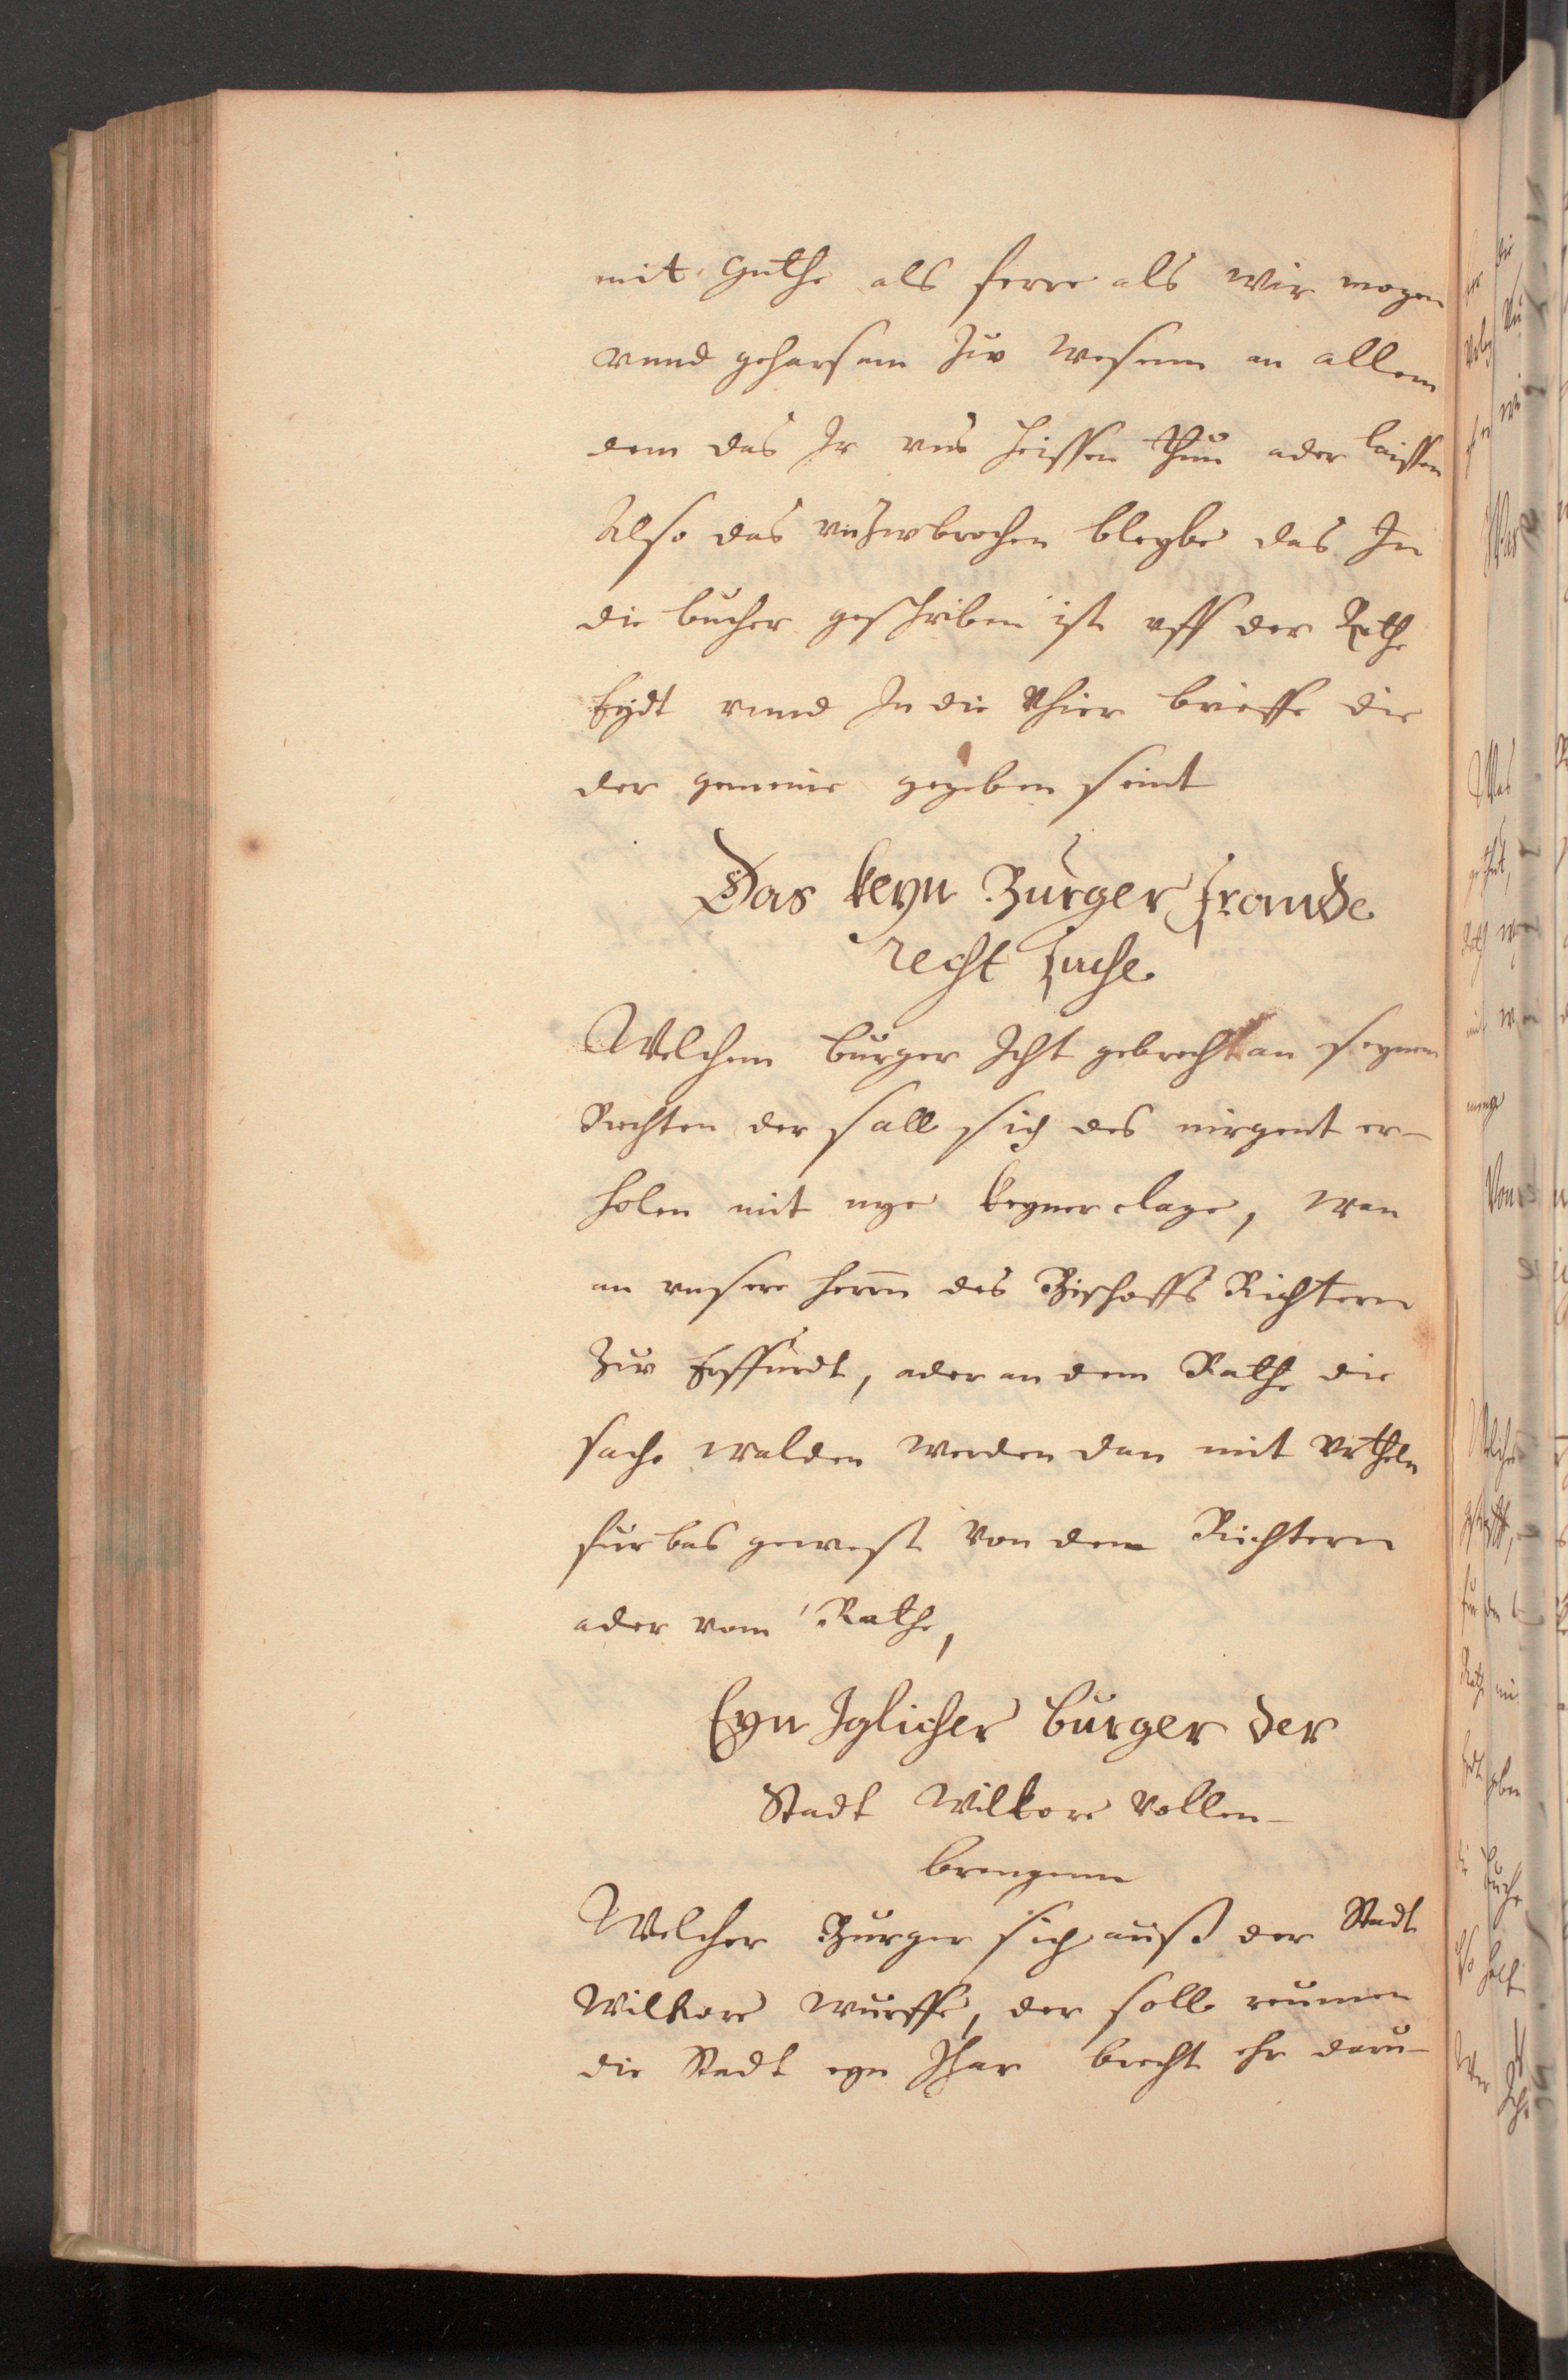 mit guthe als ferre als wir mogen
vnnd gehorsam zuv wesenn an allem
dem das Ir vns heissen thun ader laissen
Also das vnzuvbrochen bleybe das In
die bucher geschriben ist vff der Rethe
Eydt vnnd In die Vhier brieffe die
der gemeine gegeben seint
Das keyn Burger fromde
recht suche
Welchem burger Icht gebrecht an seynem
Rechten der sall sich des nirgent er-
holen mit nye keyner clage, wan
an vnsere herrn des Bischoffs Richtern
zuv Erffurdt, ader an dem Rathe die
sache walden werden dan mit vrtheln
furbas geweist von den Richtern
ader vom Rathe,
Eyn Iglicher burger der
Stadt Wilkore vollen-
brengenn
Welcher Burger sich auß der Stadt
Wilkore wurffe, der soll reumen
die Stadt eyn Jhar brecht ehr daru-